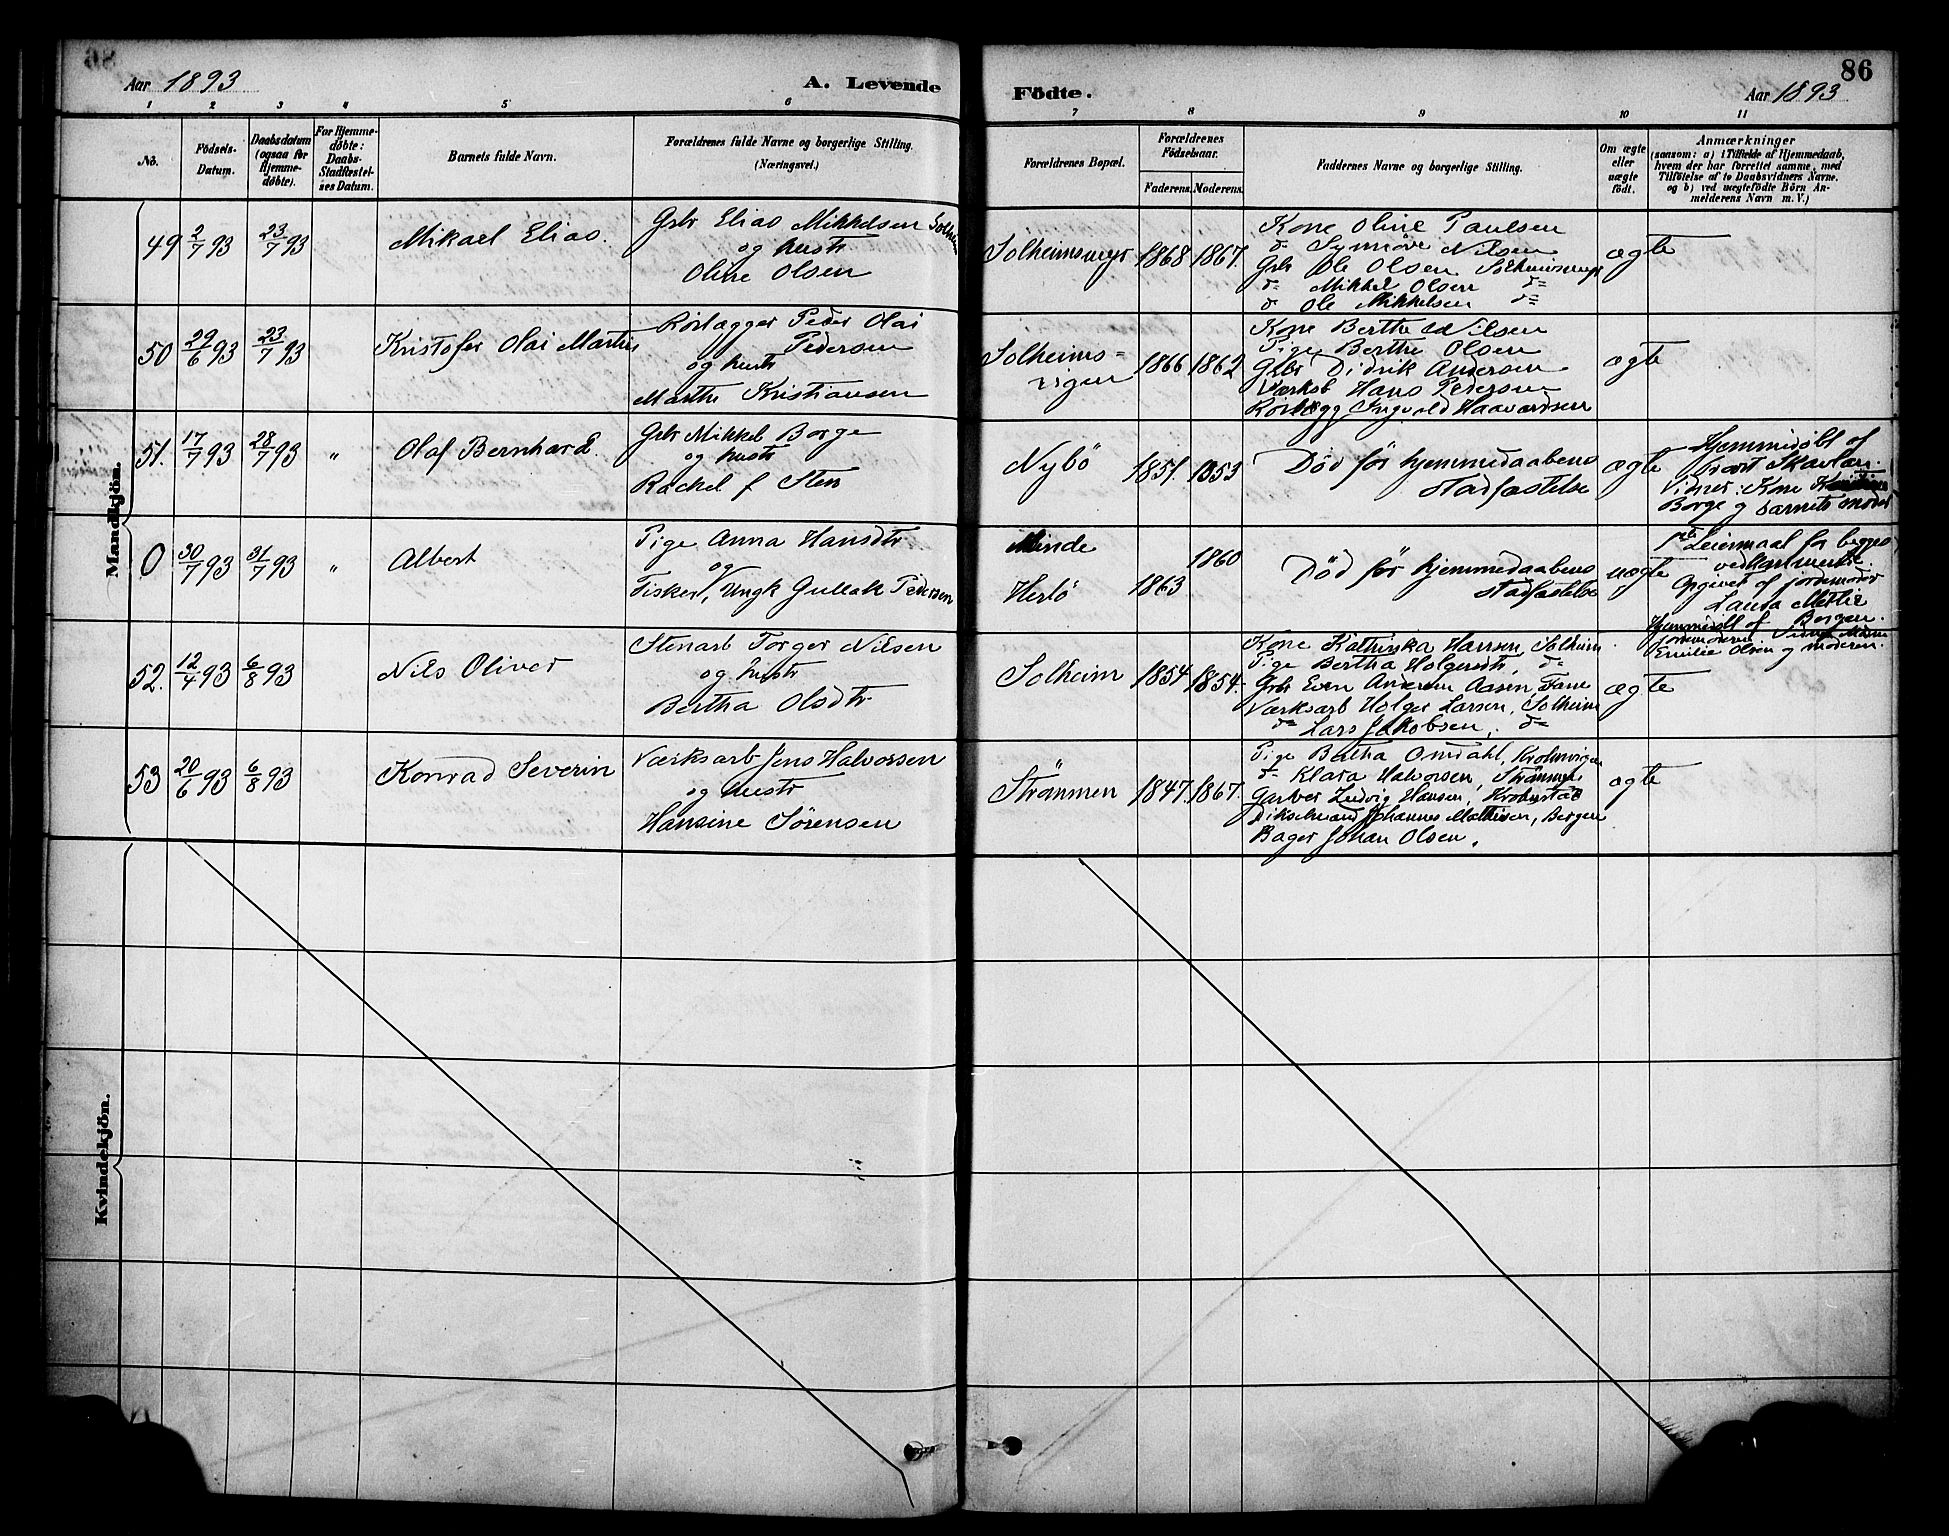 86
Aar 1893
A. Levende
Födte.
Aar 1893
1
2
3
4
5
6
7
8
9
10
11
No.
Födsels-
Datum.
Daabsdatum
(ogsaa for
Hjemme-
døbte).
For Hjemme-
døbte:
Daabs-
Stadfæstel-
ses Datum.
Barnets fulde Navn.
Forældrenes fulde Navne og borgerlige Stilling.
(Næringsvei.)
Forældrenes Bopæl.
Forældrenes
Födselsaar.
Faderens.
Moderens.
Faddernes Navne og borgerlige Stilling.
Om ægte
eller
uægte
födt.
Anmærkninger
(saasom: a) i Tilfælde af Hjemmedaab,
hvem der har forrettet samme, med
Tilföielse af to Daabsvidners Navne,
og b) ved uægtefödte Börn An-
melderens Navn m. V.)
Mandkjön.
49
2/7 93
23/7 93
Mikael Elias.
Gbr Elias Mikkelsen
og hustr
Oline Olsen
Solheimsmyr
1868
1867.
Kone Oline Paulsen
do Synnöve Nilsen
Gbr Ole Olsen Solheimsmyr
do Mikkel Olsen do
do Ole Mikkelsen do
ægte
50
29/6 93
23/7 93
Kristofer Olai Martin
Rörlægger Peder Olai
Pedersen
og hustr
Marthe Kristiansen
Solheims-
vigen
1866
1862
Kone Berthe Nilsen
Pige Berthe Olsen
Gbr Didrik Andersen
Værksb Hans Pedersen
Rörlægg Ingvald Haavardsen
ægte
51.
17/7 93
28/7 93
"
Olaf Bernhard.
Gbr Mikkel Borge
og hustr
Rachel f Sten
Nybö
1851.
1853
Død før hjemmedaabens
stadfæstelse
ægte
Hjemmedøbt af
provst Skavlan.
Vidner: Kone
Borge og barnets moder
0
30/7 93
31/7 93
"
Albert
Pige Anna Hansdtr
og
Fisker, Ungk Gullak Pedersen
Minde
Herlö
1863
1860
Død før hjemmedaabens
stadfæstelse
uægte
1ste Leiermaal for begge
Opgivet af jordemoder
Laura Methie
Bergen.
Hjemmedøbt af
jordemoderen
Emilie Olsen og moderen.
52.
12/4 93
6/8 93
Nils Oliver
Stenarb Torger Nilsen
og hustr
Bertha Olsdtr
Solheim
1854
1854.
Kone Kathinka Hansen, Solheim
Pige Bertha Holgersdtr, do
Gbr Even Andersen Aasen, Fane
Værksarb Holger Larsen, Solheim
do Lars Jakobsen, do
ægte
53
20/6 93
6/8 93
Konrad Severin
Værksarb Jens Halvorsen
og hustr
Hansine Sörensen
Strömmen
1847.
1867.
Pige Bertha Omdahl, Krohnvigen
do Klara Halvorsen, Strömmen
Garver Ludvig Hansen, Krohnstad
Johannes Mathisen, Bergen
Bager Johan Olsen.
ægte
Kvindekjön.